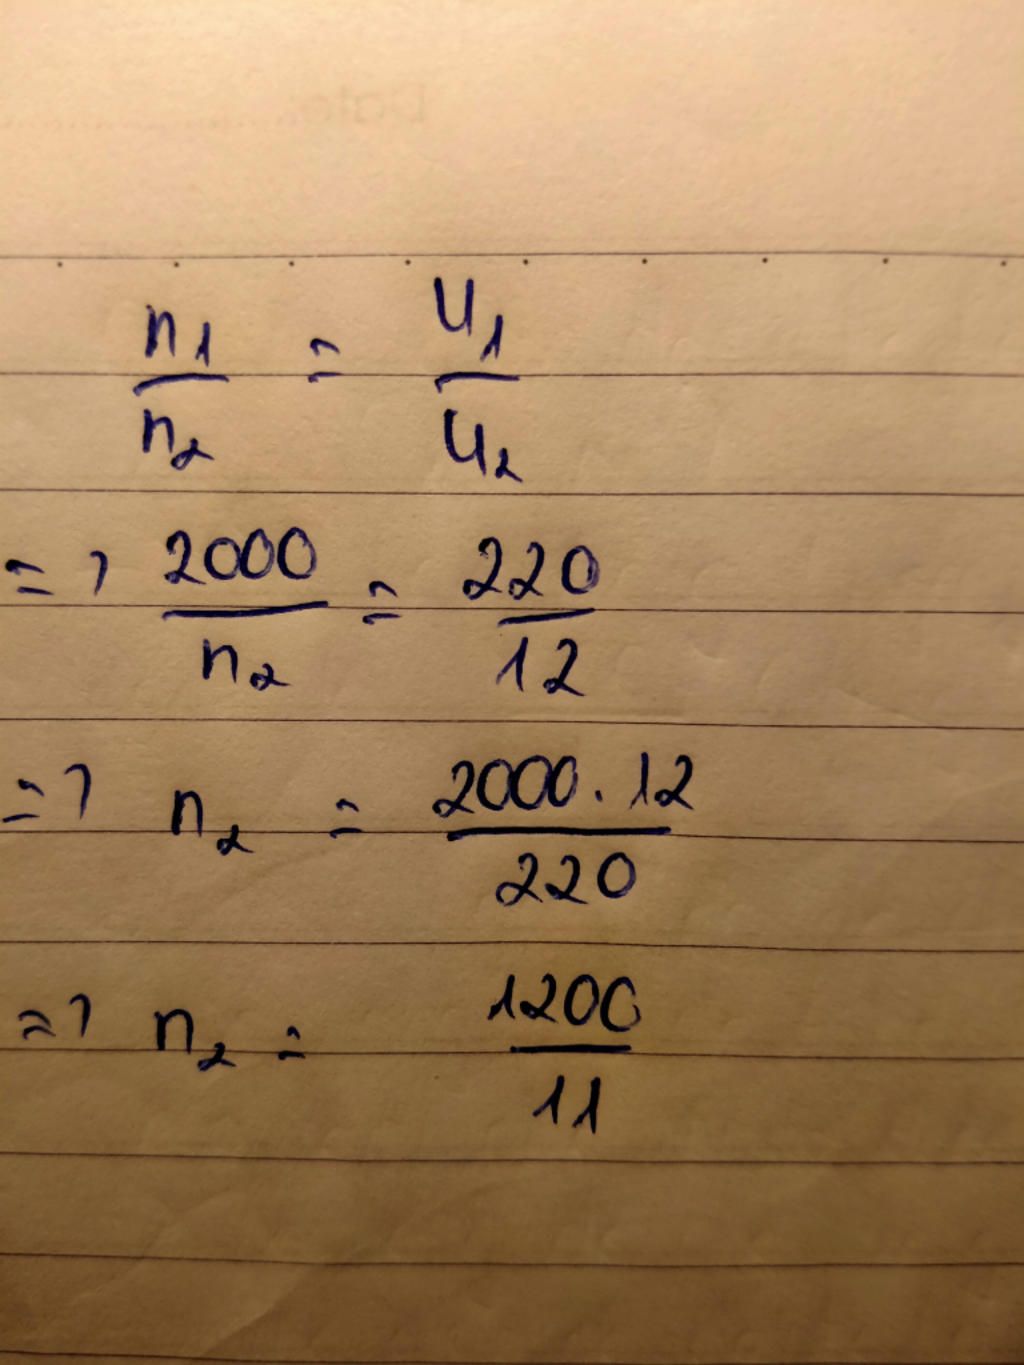 n1/n2 = U1/U2
=> 2000/n2 = 220/12
=> n2 = 2000.12/220
=> n2 = 1200/11